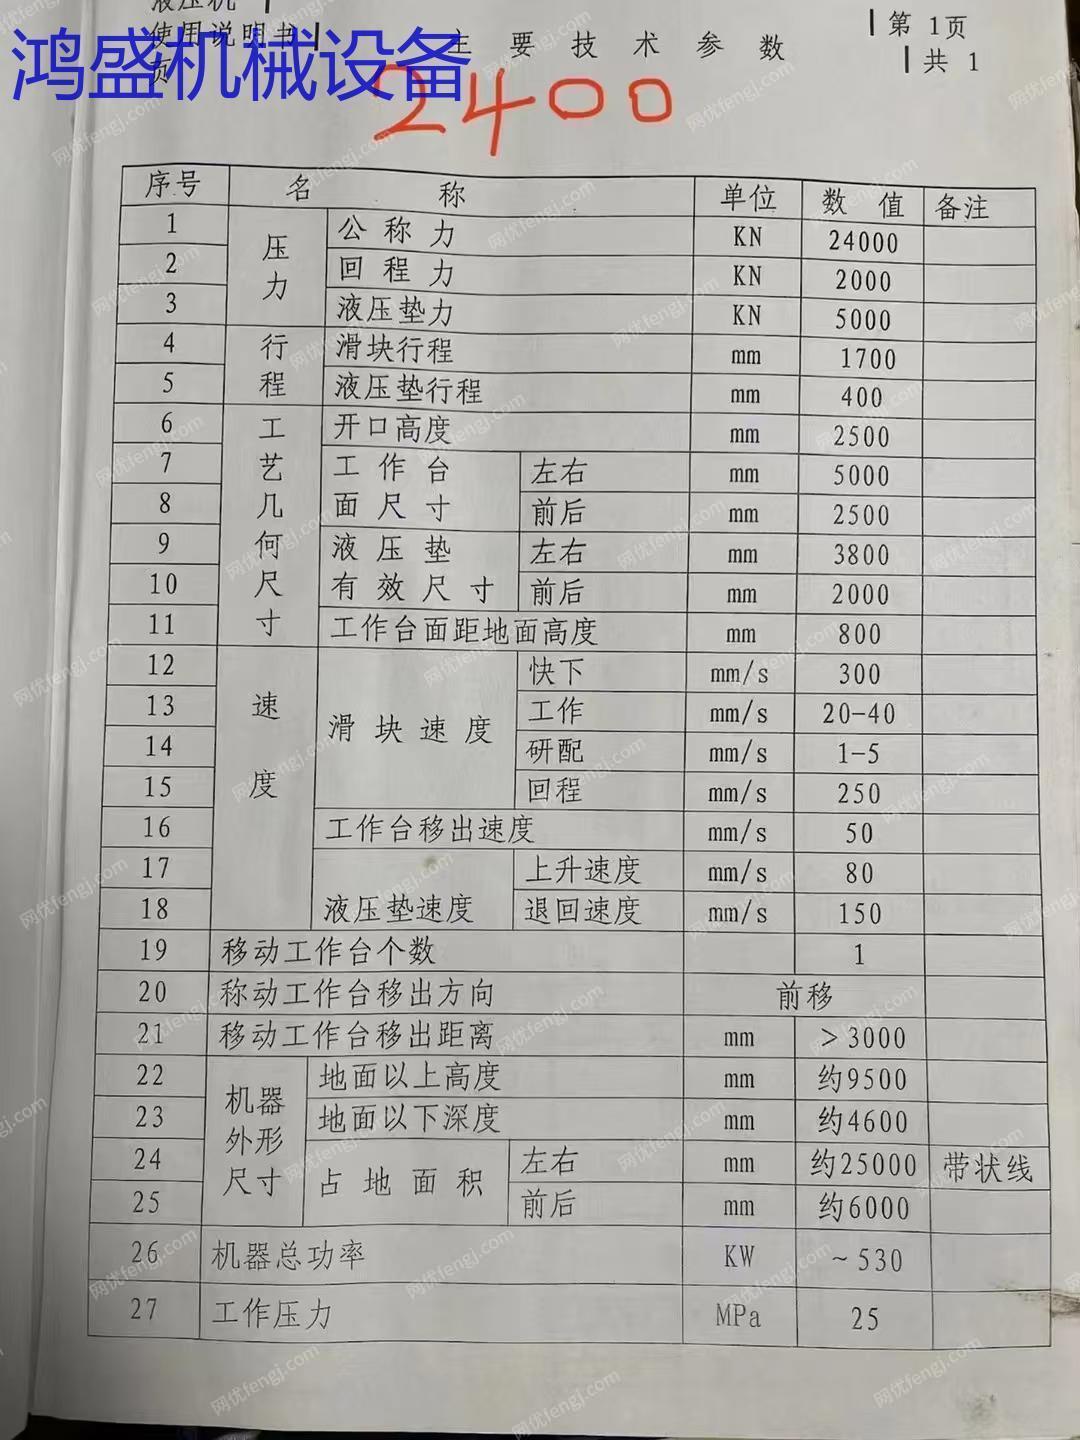 液压机
使用说明书
页
鸿盛机械设备
主 要 技 术 参 数
第 1页
共 1
2400
序号 名 称 单位 数 值 备注
1 压力 公 称 力 KN 24000
2 回 程 力 KN 2000
3 液压垫力 KN 5000
4 行程 滑块行程 mm 1700
5 液压垫行程 mm 400
6 工艺几何尺寸 开口高度 mm 2500
7 工 作 台 左右 mm 5000
8 面 尺 寸 前后 mm 2500
9 液 压 垫 左右 mm 3800
10 有 效 尺 寸 前后 mm 2000
11 工作台面距地面高度 mm 800
12 速度 滑 块 速 度 快下 mm/s 300
13 工作 mm/s 20-40
14 研配 mm/s 1-5
15 回程 mm/s 250
16 工作台移出速度 mm/s 50
17 液压垫速度 上升速度 mm/s 80
18 退回速度 mm/s 150
19 移动工作台个数 1
20 称动工作台移出方向 前移
21 移动工作台移出距离 mm >3000
22 机器外形尺寸 地面以上高度 mm 约9500
23 地面以下深度 mm 约4600
24 占 地 面 积 左右 mm 约25000 带状线
25 前后 mm 约6000
26 机器总功率 KW ~530
27 工作压力 MPa 25
网优fengj.com